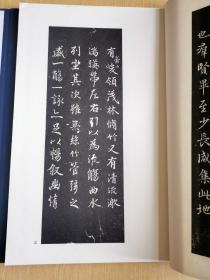 也羣賢畢至少長咸集此地
有崇山峻領茂林脩竹又有清流激
湍暎帶左右引以為流觴曲水
列坐其次雖無絲竹管弦之
盛一觴一詠亦足以暢叙幽情